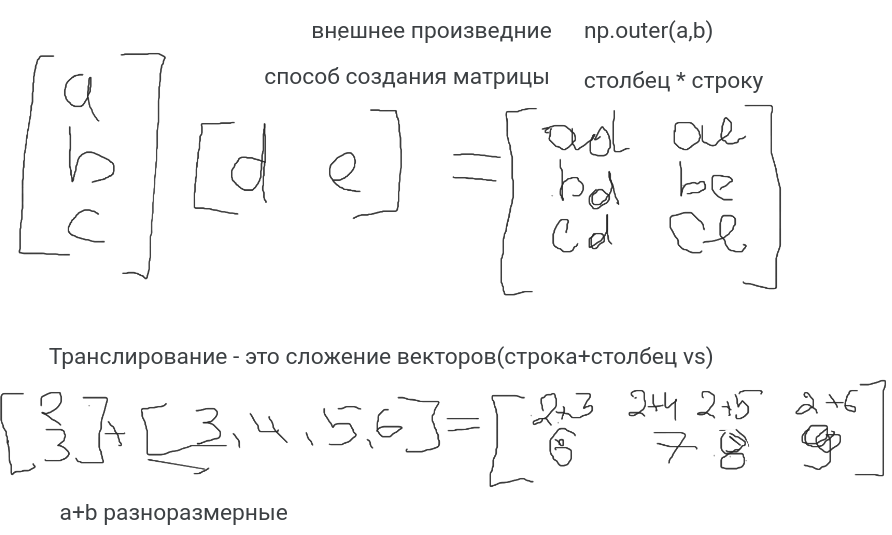 внешнее произведние np.outer(a,b)
способ создания матрицы столбец * строку
[a b c] [d e] = [ad ae
bd be
cd ce]
Транслирование - это сложение векторов(строка+столбец vs)
[2 3] + [3, 4, 5, 6] = [2+3 2+4 2+5 2+6
6 7 8 9]
a+b разноразмерные